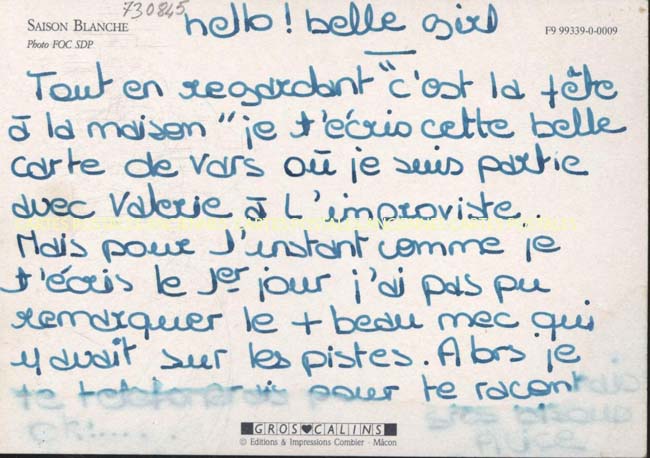 730845
SAISON BLANCHE
Photo FOC SDP
F9 99339-0-0009
hello! belle girl
Tout en regardant "c'est la fête
à la maison" je t'écris cette belle
carte de Vars où je suis partie
avec Valerie à L'improviste.
Mais pour l'instant comme je
t'écris le 1er jour j'ai pas pu
remarquer le + beau mec qui
y avait sur les pistes. Alors je
te pour te racont
GROS CALINS
© Editions & Impressions Combier - Mâcon